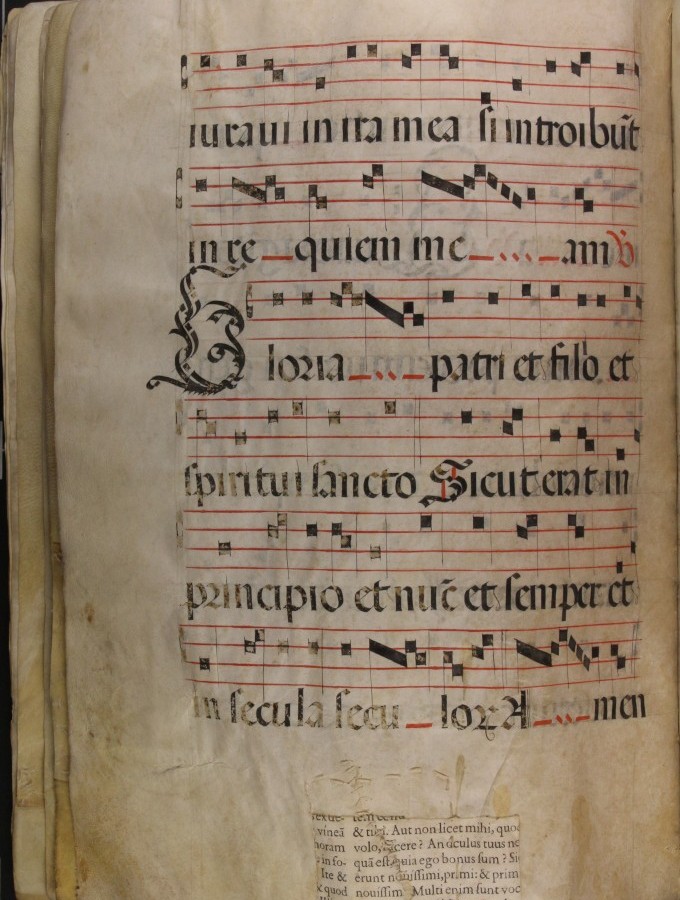 iuraui in ira mea si introibūt
in re quiem me am ℣
Gloria patri et filio et
spiritui sancto Sicut erat in
principio et nūc et semper et
in secula secu loꝝ A men
vineā
oram
in fo-
Ite &
quod
& tibi. Aut non licet mihi, quod
volo, facere? An oculus tuus ne
quā est, quia ego bonus sum? Si
erunt nouissimi, primi: & prim
nouissim Multi enim sunt voc